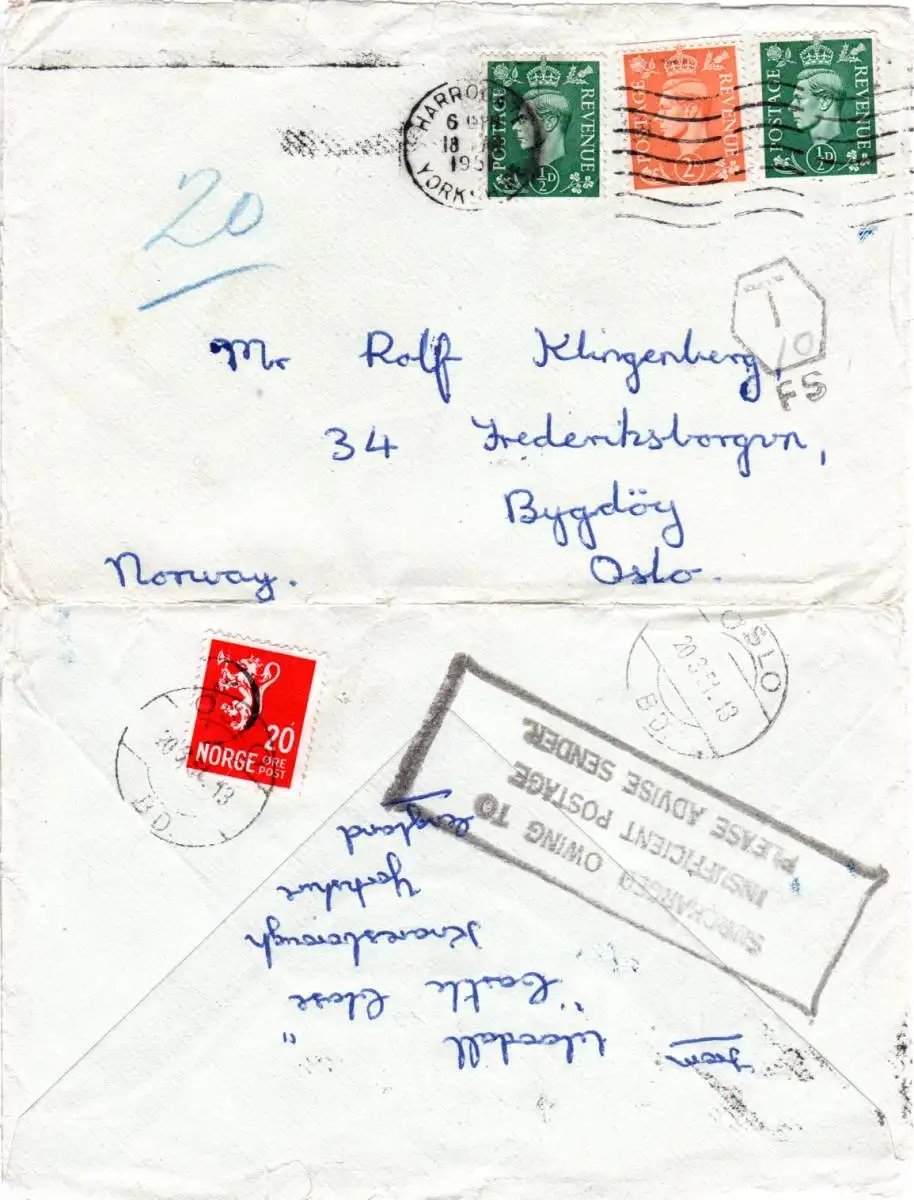 HARROGATE
6
18
195
YORKS
POSTAGE REVENUE
½D
POSTAGE REVENUE
2D
POSTAGE REVENUE
½D
20
T
10
FS
Mr Rolf Klingenberg,
34 Frederiksborgvn,
Bygdöy
Norway. Oslo.
20
NORGE ØRE
POST
OSLO
20.3.51.13
BD.
OSLO
20.3.51.13
BD.
SURCHARGED OWING TO
INSUFFICIENT POSTAGE
PLEASE ADVISE SENDER.
From Woodall
"Castle Close"
Knaresborough
Yorkshire
England